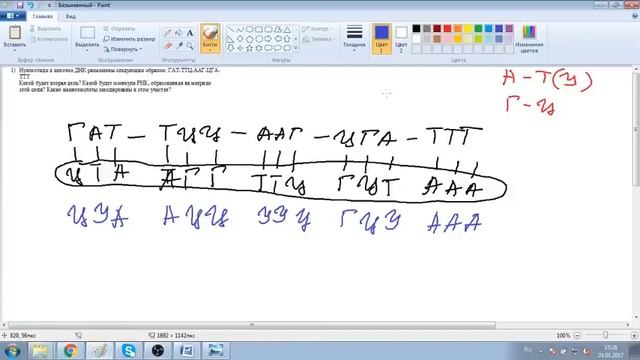 Безымянный - Paint
Главная Вид
Вставить Выделить Кисти Толщина Цвет 1 Цвет 2 Изменение цветов
Буфер обмена Изображение Инструменты Фигуры Цвета
1) Нуклеотиды в цепочке ДНК размещены следующим образом: ГАТ-ТТЦ-ААГ-ЦГА-
ТТТ
Какой будет вторая цепь? Какой будет молекула РНК, образованная на матрице
этой цепи? Какие аминокислоты закодированы в этом участке?
А – Т(У)
Г – Ц
ГАТ – ТЦЦ – ААГ – ЦГА – ТТТ
ЦТА АГГ ТТЦ ГЦТ ААА
ЦУА АЦЦ УУЦ ГЦУ ААА
820, 56пкс 1692 × 1142пкс 100%
RU 15:26
24.01.2017